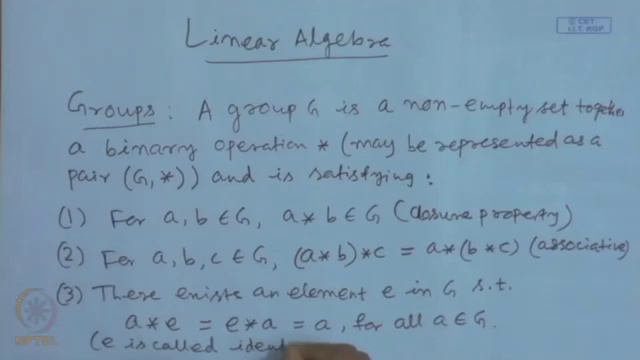 © CET
I.I.T. KGP
Linear Algebra
Groups : A group G is a non-empty set together
a binary operation * (may be represented as a
pair (G, *)) and is satisfying :
(1) For a, b ∈ G, a * b ∈ G (closure property)
(2) For a, b, c ∈ G, (a * b) * c = a * (b * c) (associative)
(3) There exists an element e in G s.t.
a * e = e * a = a, for all a ∈ G.
(e is called ident
NPTEL